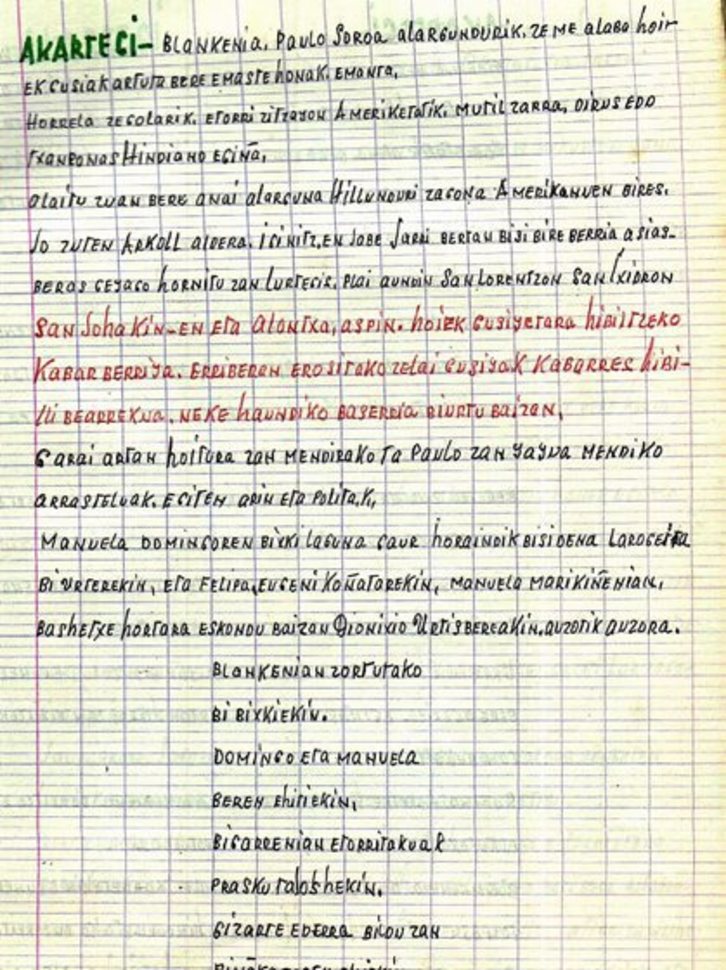 AKARTEGI - BLANKENIA. PAULO SOROA alARGUNDURIK. ZEME alaba hoir
EK GUSIAK ARTUTA BERE EMASTE HONAK. EMANTA,
HORRELA ZEGOLARIK. ETORRI ZITZAYON AMERIKETATIK. MUTIL ZARRA, DIRUS EDO
TXANPONAS HINDIANO EGIÑA,
Olaitu ZUAN BERE ANAI alARGUNA HILLUNDURI ZAGONA AMERIKANUEN BIRES.
JO ZUTEN ARKOLL ALDERA. IGINITZ,EN JABE JARRI BERTAN BISI BIRE BERRIA ASIAS-
BERAS GEYAGO HORNITU ZAN LURTEGIS. PLAI AUNDIN SAN LORENTZON SAN IXIDRON
SAN JOHAKIN-EN ETA ALONTXA, ASPIN. HOIEK GUSIYETARA HIBILTZEKO
KABAR BERRIYA. ERRIBERAN EROSITAKO ZELAI GUSIYAK KABARRES HIBI-
LLI BEARREKUA. NEKE HAUNDIKO BASERRIA BIURTU BAIZAN,
GARAI ARTAN HOITURA ZAN MENDIRAKO TA PAULO ZAN YAYUA MENDIKO
ARRASTELUAK. EGITEN ARIN ETA POLITAK,
MANUELA DOMINGOREN BIXKI LAGUNA GAUR HORAINDIK BISI DENA LAROGEITA
BI URTEREKIN, ETA FELIPA, EUGENI KOÑATAREKIN, MANUELA MARIKIÑENIAN,
BASHETXE HORTARA ESKONDU BAIZAN DIONIXIO URTISBEREAKIN. AUZOTIK AUZORA.
BLANKENIAN ZORTUTAKO
BI BIXKIEKIN.
DOMINGO ETA MANUELA
BEREN EHITIEKIN,
BIGARRENIAN ETORRITAKUAK
PRASKU TALOSHEKIN.
GIZARTE EDERRA BILDU ZAN